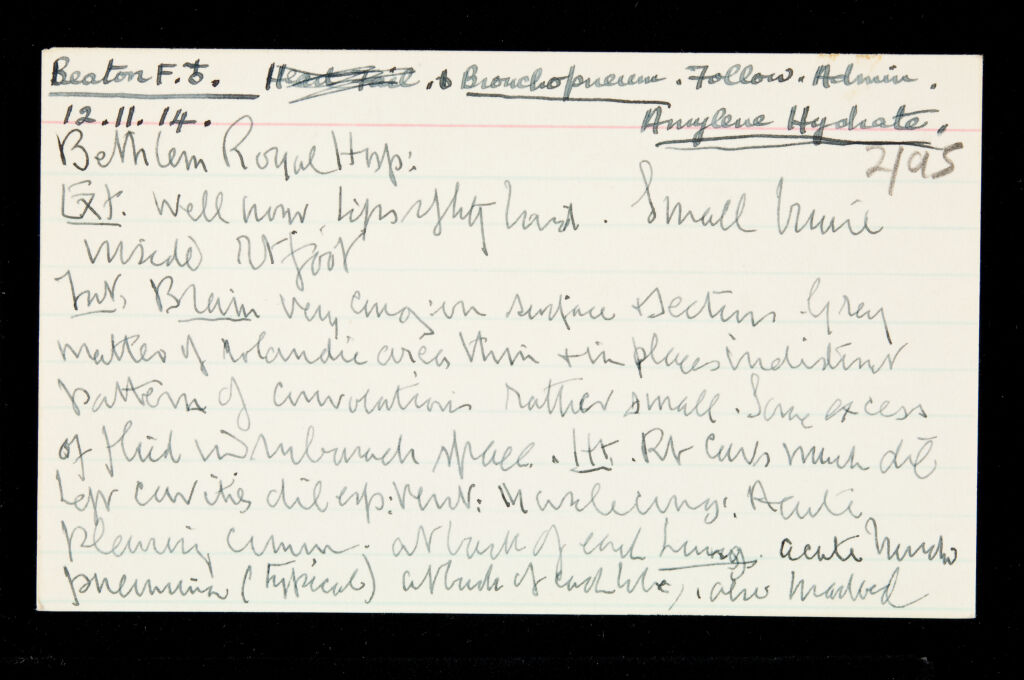 Beaton F. 6. Heart Fail. & Bronchopneum. Follow. Admin.
12.11.14. Amylene Hydrate.
Bethlem Royal Hosp: 2/95
Ext. Well nour Lips slightly livid. Small bruise
inside Rt foot
Int. Brain very cong: on surface & section Grey
matter of rolandic areas thin & in places indistinct
pattern of convolutions rather small. Some excess
of fluid in subarach space. Ht. Rt cavs much dil
Left cavities dil esp: vent: Muscle cong: Acute
pleurisy comm. at back of each Lung. acute broncho
pneumonia (typical) at back of each lobe, also marked